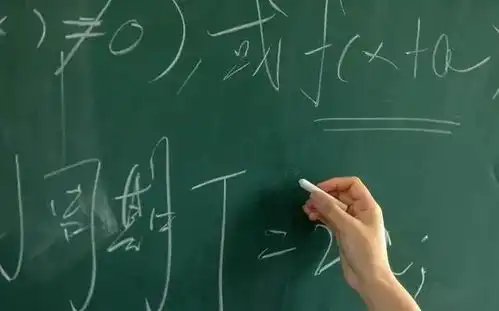 ) ≠ 0 ) , 或 f ( x + a
周期 T = 2